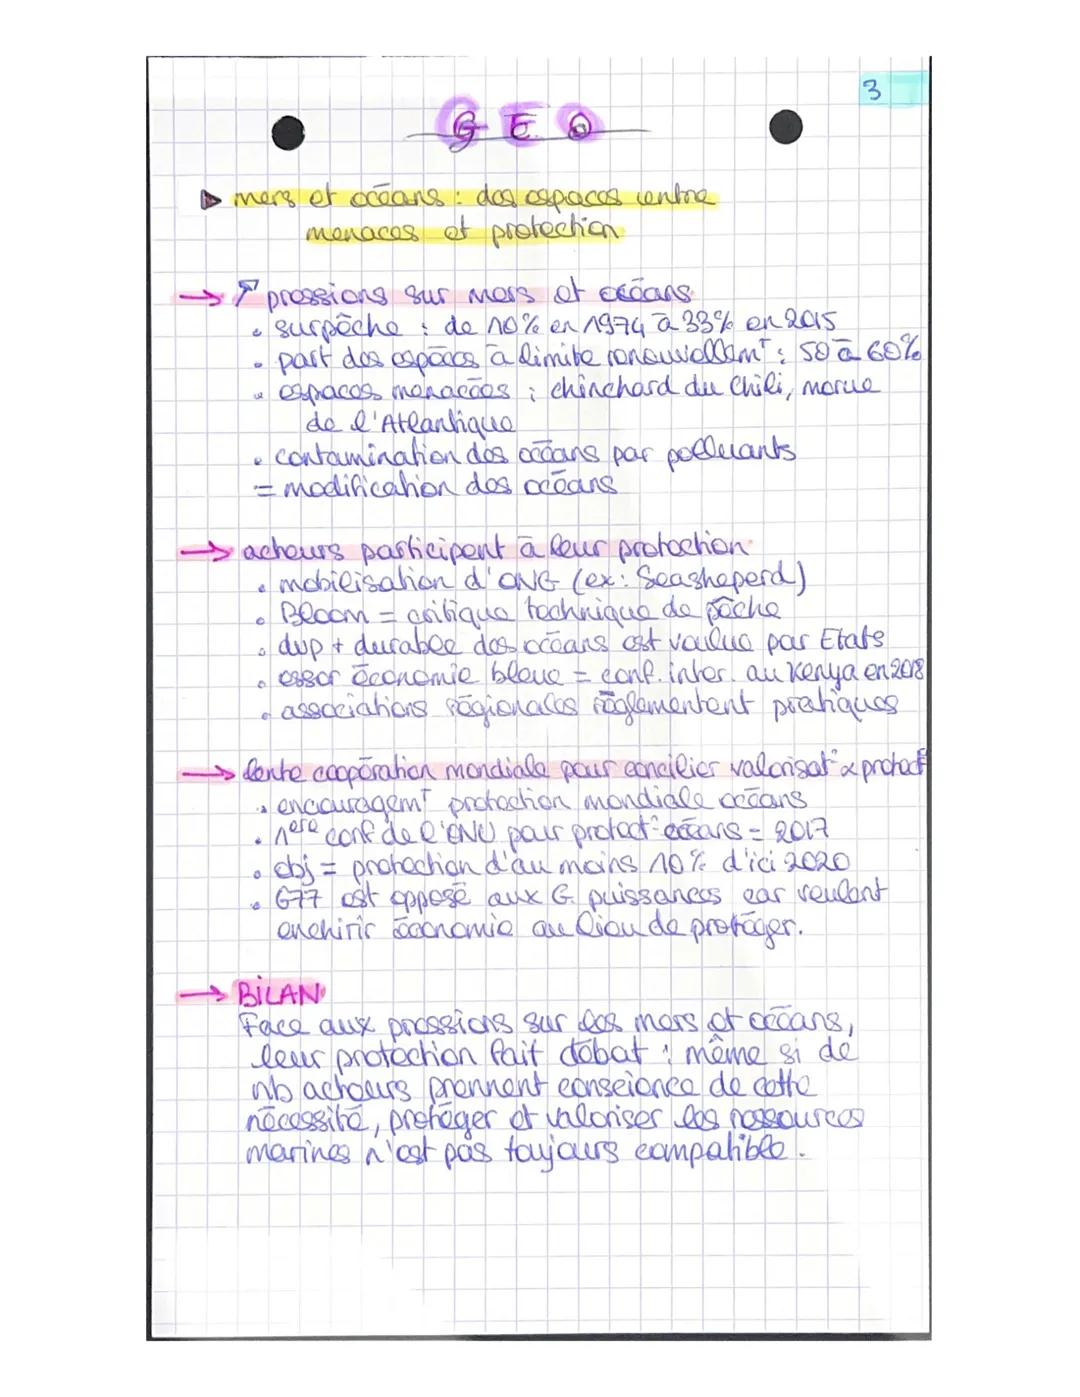 3
GEO
▶ mers et océans : des espaces entre
menaces et protection
→ ↗ pressions sur mers et océans
• surpêche : de 10% en 1974 à 33% en 2015
• part des espèces à limite renouvellemt : 50 à 60%
• espaces menacées : chinchard du Chili, morue
de l'Atlantique
• contamination des océans par polluants
= modification des océans
→ acteurs participent à leur protection
• mobilisation d'ONG (ex: Seasheperd)
• Bloom = critique technique de pêche
• dvp + durable des océans est voulue par Etats
• essor économie bleue = conf. inter. au Kenya en 2018
• associations régionales règlementent pratiques
→ lente coopération mondiale pour concilier valorisat° & protect°
• encouragemt protection mondiale océans
• 1ère conf de l'ONU pour protect° océans = 2017
• obj = protection d'au moins 10% d'ici 2020
• G77 est opposé aux G. puissances car veulent
enchirir économie au lieu de protéger.
→ BILAN
Face aux pressions sur les mers et océans,
leur protection fait débat : même si de
nb acteurs prennent conscience de cette
nécessité, protéger et valoriser les ressources
marines n'est pas toujours compatible.